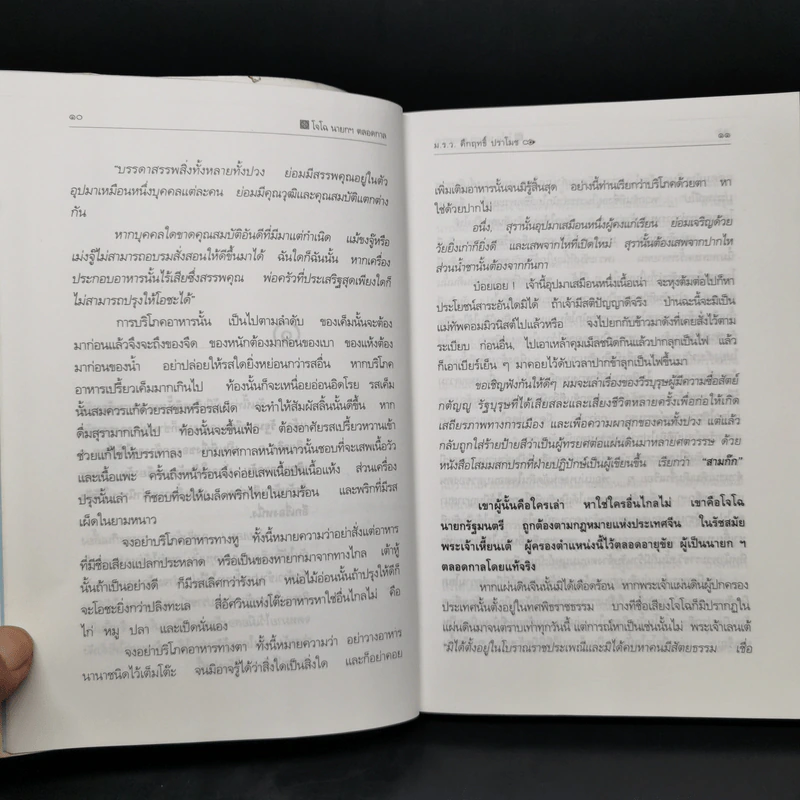 ๑๐
โจโฉ นายกฯ ตลอดกาล
"บรรดาสรรพสิ่งทั้งหลายทั้งปวง ย่อมมีสรรพคุณอยู่ในตัว
อุปมาเหมือนหนึ่งบุคคลแต่ละคน ย่อมมีคุณวุฒิและคุณสมบัติแตกต่าง
กัน
หากบุคคลใดขาดคุณสมบัติอันดีที่มีมาแต่กำเนิด แม้ขงจู๊หรือ
เม่งจู๊ไม่สามารถอบรมสั่งสอนให้ดีขึ้นมาได้ ฉันใดก็ฉันนั้น หากเครื่อง
ประกอบอาหารนั้นไร้เสียซึ่งสรรพคุณ พ่อครัวที่ประเสริฐสุดเพียงใดก็
ไม่สามารถปรุงให้โอชะได้"
การบริโภคอาหารนั้น เป็นไปตามลำดับ ของเค็มนั้นจะต้อง
มาก่อนแล้วจึงจะถึงของจืด ของหนักต้องมาก่อนของเบา ของแห้งต้อง
มาก่อนของน้ำ อย่าปล่อยให้รสใดยิ่งหย่อนกว่ารสอื่น หากบริโภค
อาหารเปรี้ยวเค็มมากเกินไป ท้องนั้นก็จะเหนื่อยอ่อนอิดโรย รสเค็ม
นั้นสมควรแก้ด้วยรสขมหรือรสเผ็ด จะทำให้สัมผัสลิ้นนั้นตีขึ้น หาก
ดื่มสุรามากเกินไป ท้องนั้นจะขึ้นเฟ้อ ต้องอาศัยรสเปรี้ยวหวานเข้า
ช่วยแก้ไขให้บรรเทาลง ยามเทศกาลหน้าหนาวนั้นชอบที่จะเสพเนื้อวัว
และเนื้อแพะ ครั้นถึงหน้าร้อนจึงค่อยเสพเนื้อปนเนื้อแห้ง ส่วนเครื่อง
ปรุงนั้นเล่า ก็ชอบที่จะให้เมล็ดพริกไทยในยามร้อน และพริกที่มีรส
เผ็ดในยามหนาว
จงอย่าบริโภคอาหารทางหู ทั้งนี้หมายความว่าอย่าสั่งแต่อาหาร
ที่มีชื่อเสียงแปลกประหลาด หรือเป็นของหายากมาจากทางไกล เต้าหู้
นั้นถ้าเป็นอย่างดี ก็มีรสเลิศกว่ารังนก หน่อไม้อ่อนนั้นถ้าปรุงให้ดีก็
จะโอชะยิ่งกว่าปลิงทะเล สี่อัศวินแห่งโต๊ะอาหารหาใช่อื่นไกลไม่ คือ
ไก่ หมู ปลา และเป็ดนั่นเอง
จงอย่าบริโภคอาหารทางตา ทั้งนี้หมายความว่า อย่าวางอาหาร
นานาชนิดไว้เต็มโต๊ะ จนมิอาจรู้ได้ว่าสิ่งใดเป็นสิ่งใด และก็อย่าคอย
ม.ร.ว. คึกฤทธิ์ ปราโมช
๑๑
เพิ่มเติมอาหารนั้นจนมิรู้สิ้นสุด อย่างนี้ท่านเรียกว่าบริโภคด้วยตา หา
ใช่ด้วยปากไม่
อนึ่ง สุรานั้นอุปมาเสมือนหนึ่งผู้คงแก่เรียน ย่อมเจริญด้วย
วัยยิ่งเก่าก็ยิ่งดี และเสพจากไหที่เปิดใหม่ สุรานั้นต้องเสพจากปากไห
ส่วนน้ำชานั้นต้องจากก้นกา
บ๋อยเอย ! เจ้านี้อุปมาเสมือนหนึ่งเนื้อเน่า จะหุงต้มต่อไปก็หา
ประโยชน์สาระอันใดมิได้ ถ้าเจ้ามีสติปัญญาดีจริง ป่านฉะนี้จะมิเป็น
แม่ทัพคอมมิวนิสต์ไปแล้วหรือ จงไปยกกับข้าวมาดังที่เคยสั่งไว้ตาม
ระเบียบ ก่อนอื่น, ไปเอาเหล้าคุมเม็ลชนิดกินแล้วปากลุกเป็นไฟ แล้ว
ก็เอาเบียร์เย็น ๆ มาคอยไว้ดับเวลาปากข้าลุกเป็นไฟขึ้นมา
ขอเชิญฟังกันให้ดีๆ ผมจะเล่าเรื่องของวีรบุรุษผู้มีความซื่อสัตย์
กตัญญู รัฐบุรุษที่ได้เสียสละและเสี่ยงชีวิตหลายครั้งเพื่อก่อให้เกิด
เสถียรภาพทางการเมือง และเพื่อความผาสุกของคนทั้งปวง แต่แล้ว
กลับถูกใส่ร้ายป้ายสีว่าเป็นผู้ทรยศต่อแผ่นดินมาหลายศตวรรษ ด้วย
หนังสือโสมมสกปรกที่ฝ่ายปฏิปักษ์เป็นผู้เขียนขึ้น เรียกว่า "สามก๊ก"
เขาผู้นั้นคือใครเล่า หาใช่ใครอื่นไกลไม่ เขาคือโจโฉ
นายกรัฐมนตรี ถูกต้องตามกฎหมายแห่งประเทศจีน ในรัชสมัย
พระเจ้าเหี้ยนเต้ ผู้ครองตำแหน่งนี้ไว้ตลอดอายุขัย ผู้เป็นนายก ฯ
ตลอดกาลโดยแท้จริง
หากแผ่นดินจีนนั้นมิได้เดือดร้อน หากพระเจ้าแผ่นดินผู้ปกครอง
ประเทศนั้นตั้งอยู่ในทศพิธราชธรรม บางทีชื่อเสียงโจโฉก็มิปรากฏใน
แผ่นดินมาจนตราบเท่าทุกวันนี้ แต่การณ์หาเป็นเช่นนั้นไม่ พระเจ้าเลนเต้
"มิได้ตั้งอยู่ในโบราณราชประเพณีและมิได้คบหาคนมีสัตยธรรม เชื่อ